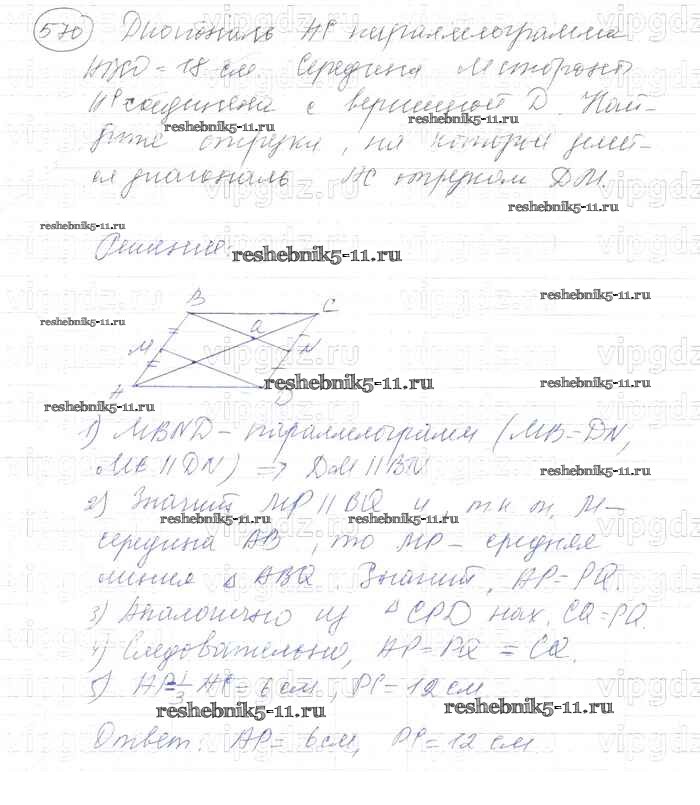 570 Диагональ АС параллелограмма
АВСD = 18 см. Середина М стороны
АВ соединена с вершиной D. Най-
дите отрезки, на которые делит-
ся диагональ АС отрезком DM.
reshebnik5-11.ru reshebnik5-11.ru
reshebnik5-11.ru
reshebnik5-11.ru
Решение:
reshebnik5-11.ru
reshebnik5-11.ru
reshebnik5-11.ru
B C
Q
M N
A D
reshebnik5-11.ru reshebnik5-11.ru
reshebnik5-11.ru
1) MBND – параллелограмм (MB=DN,
MB || DN) => DM || BN
reshebnik5-11.ru
2) Значит MP || BQ и, т.к. т. М –
reshebnik5-11.ru reshebnik5-11.ru
середина АВ, то МР – средняя
линия Δ ABQ. Значит, AP=PQ.
3) Аналогично из Δ CPD нах. CQ=PQ.
4) Следовательно, AP=PQ=CQ.
5) AP=1/3 AC=6 см, PC=12 см
reshebnik5-11.ru reshebnik5-11.ru
Ответ: AP=6см, PC=12 см